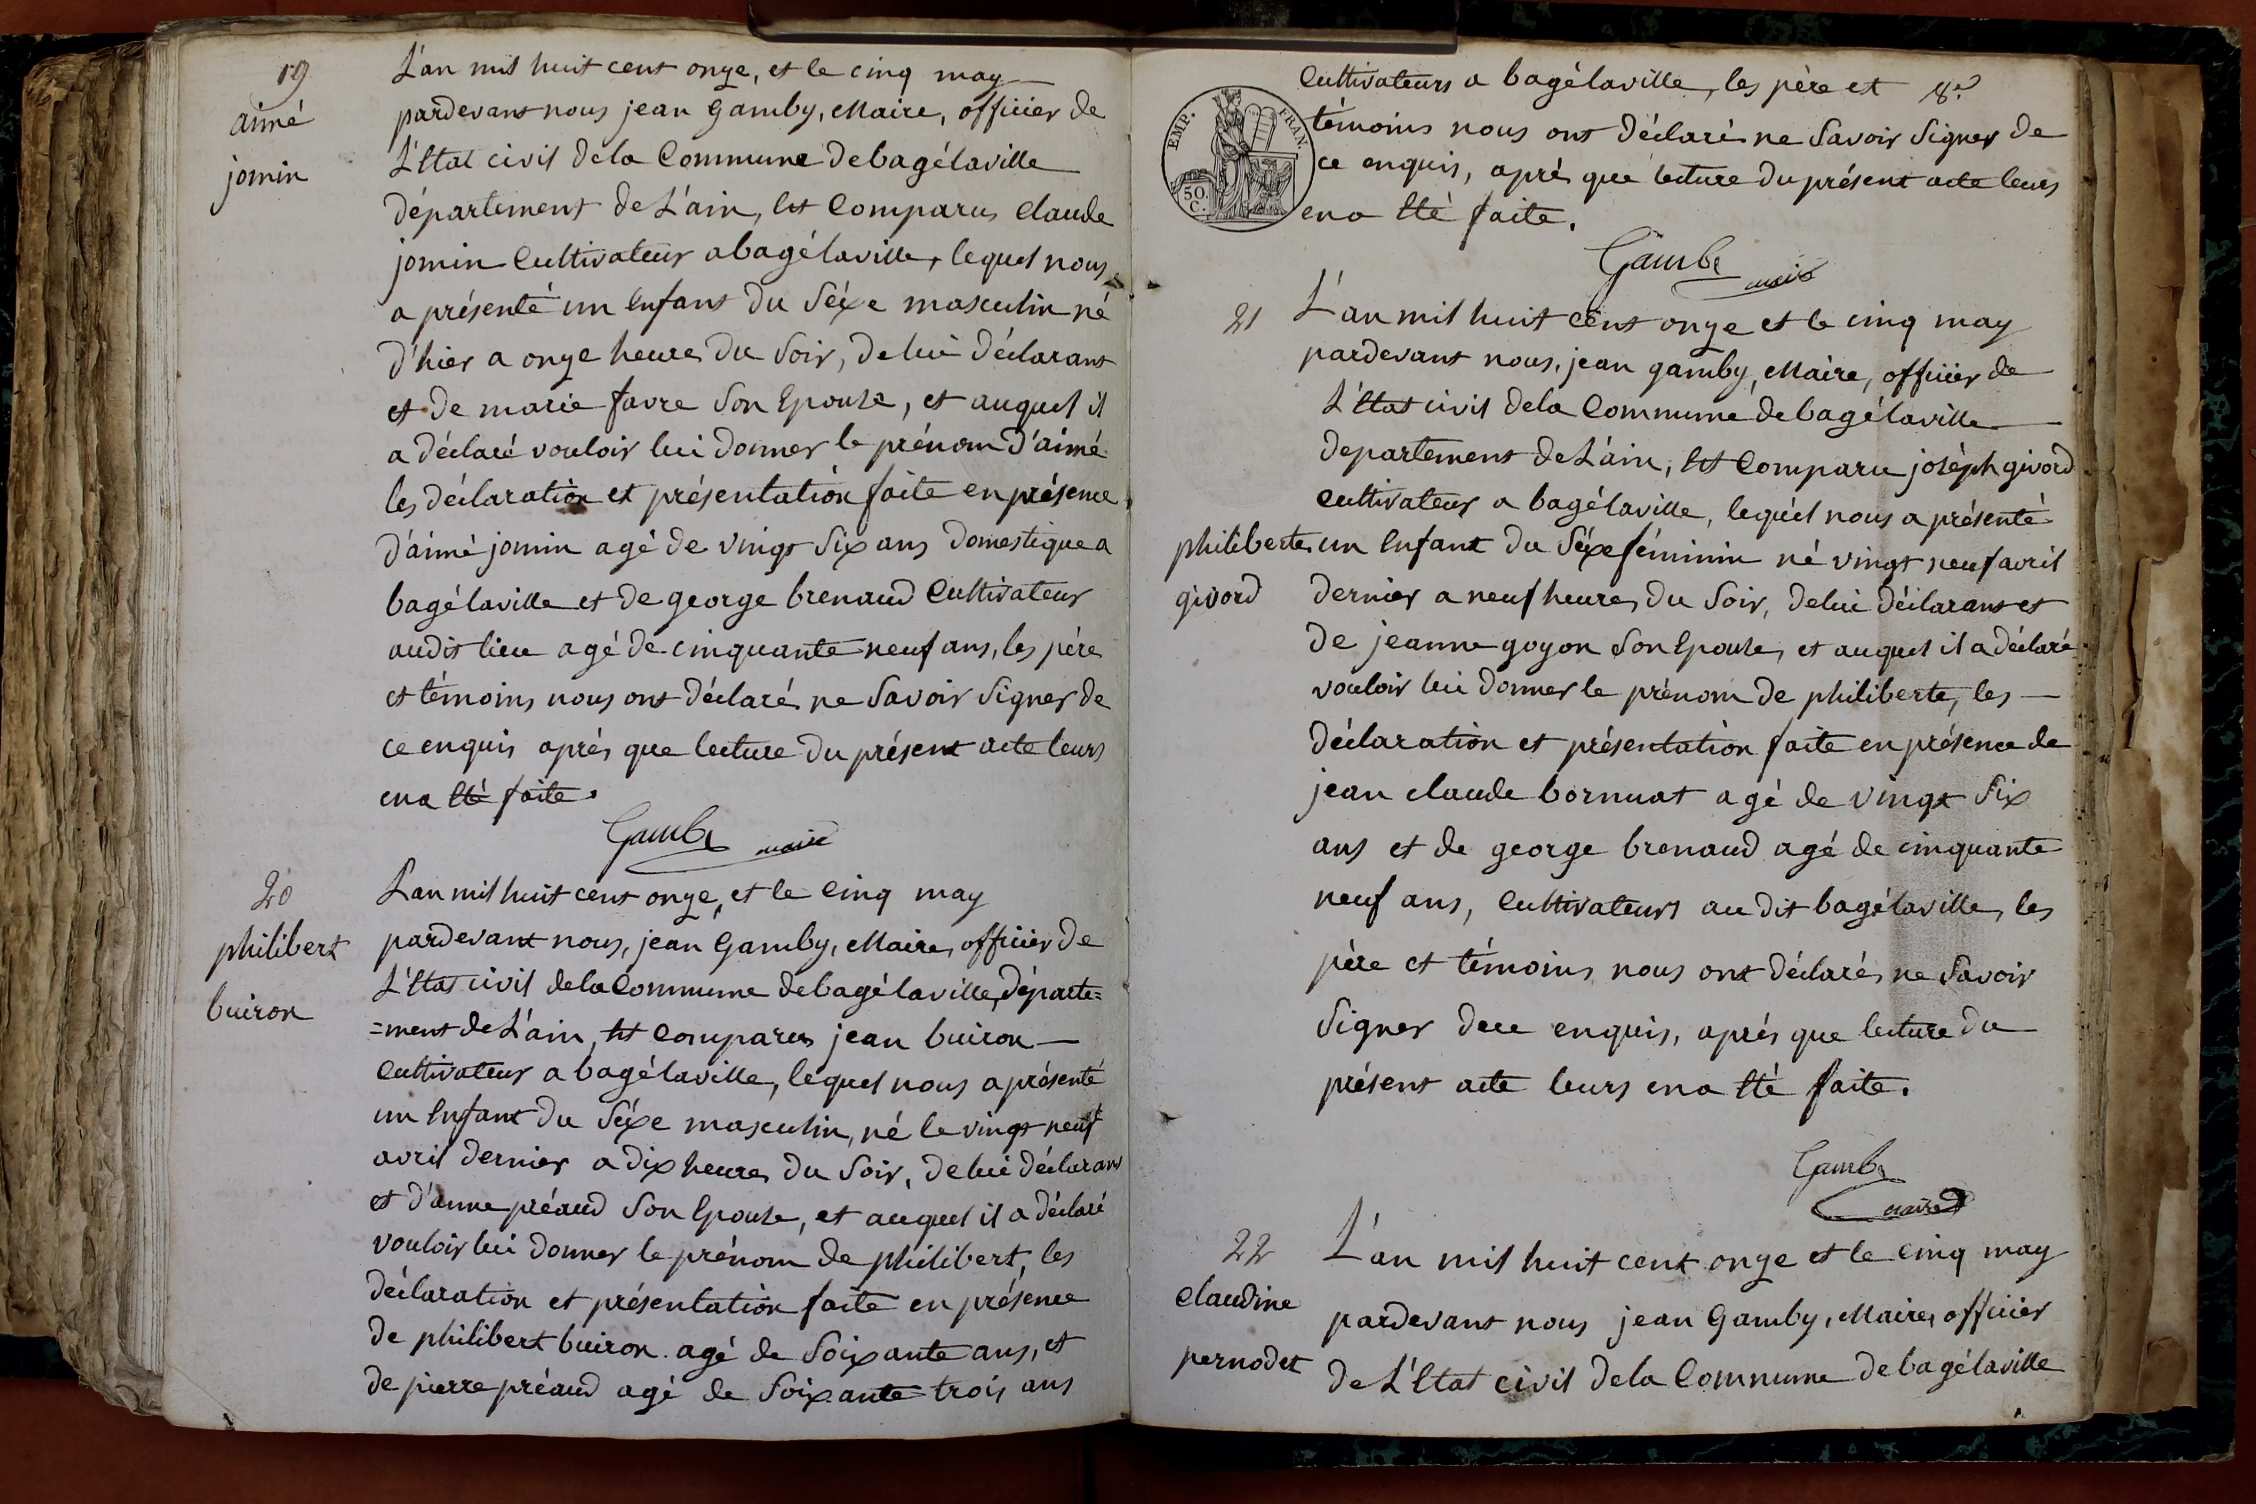 19
aimé
jomin
L'an mil huit cent onze, et le cinq may
pardevant nous jean Gamby, Maire, officier de
L'Etat civil dela Commune debagélaville
département de L'ain, Est Comparus Claude
jomin Cultivateur abagélaville, lequel nous
a présenté un Enfant du Séxe masculin né
d'hier a onze heures du Soir, delui déclarant
et de marie favre Son Epouse, et auquel il
a déclaré vouloir lui donner le prénom d'aimé
les déclaration et présentation faite en présence
d'aimé jomin agé de vingt Six ans domestique a
bagélaville et de george brenaud Cultivateur
audit lieu agé de cinquante neuf ans, les père
et témoins nous ont déclarés ne Savoir Signer de
ce enquis après que lecture du présent acte leurs
en a Eté faite.
Gamby maire
20
philibert
buiron
L'an mil huit cent onze, et le Cinq may
pardevant nous, jean Gamby, Maire, officier de
L'Etat civil dela Commune debagélaville, départe=
=ment de L'ain, Est Comparus jean buiron
Cultivateur a bagélaville, lequel nous a présenté
un Enfant du Séxe masculin, né le vingt neuf
avril dernier a dix heures du Soir, delui déclarant
et d'anne préaud Son Epouse, et auquel il a déclaré
vouloir lui donner le prénom de philibert, les
déclaration et présentation faite en présence
de philibert buiron agé de Soixante ans, et
de pierre préaud agé de Soixante trois ans
Cultivateurs a bagélaville, les père et
témoins nous ont déclarés ne Savoir Signer de
ce enquis, après que lecture du présent acte leurs
en a Eté faite.
8e
EMP. FRAN.
50
C.
Gamby maire
21
philiberte
givord
L'an mil huit cent onze et le cinq may
pardevant nous, jean gamby, Maire, officier de
L'Etat civil dela Commune debagélaville
departement de L'ain, Est Comparu joseph givord
Cultivateur a bagélaville, lequel nous a présenté
un Enfant du Séxe féminin né vingt neuf avril
dernier a neuf heures du Soir, delui déclarant et
de jeanne goyon Son Epouse, et auquel il a déclaré
vouloir lui donner le prénom de philiberte, les
déclaration et présentation faite en présence de
jean claude bornuat agé de vingt Six
ans et de george brenaud agé de cinquante
neuf ans, Cultivateurs au dit bagélaville, les
père et témoins nous ont déclarés ne Savoir
Signer dece enquis, après que lecture du
présent acte leurs en a Eté faite.
Gamby
maire
22
Claudine
pernodet
L'an mil huit cent onze et le Cinq may
pardevant nous jean Gamby, Maire, officier
de L'Etat civil dela Commune debagélaville